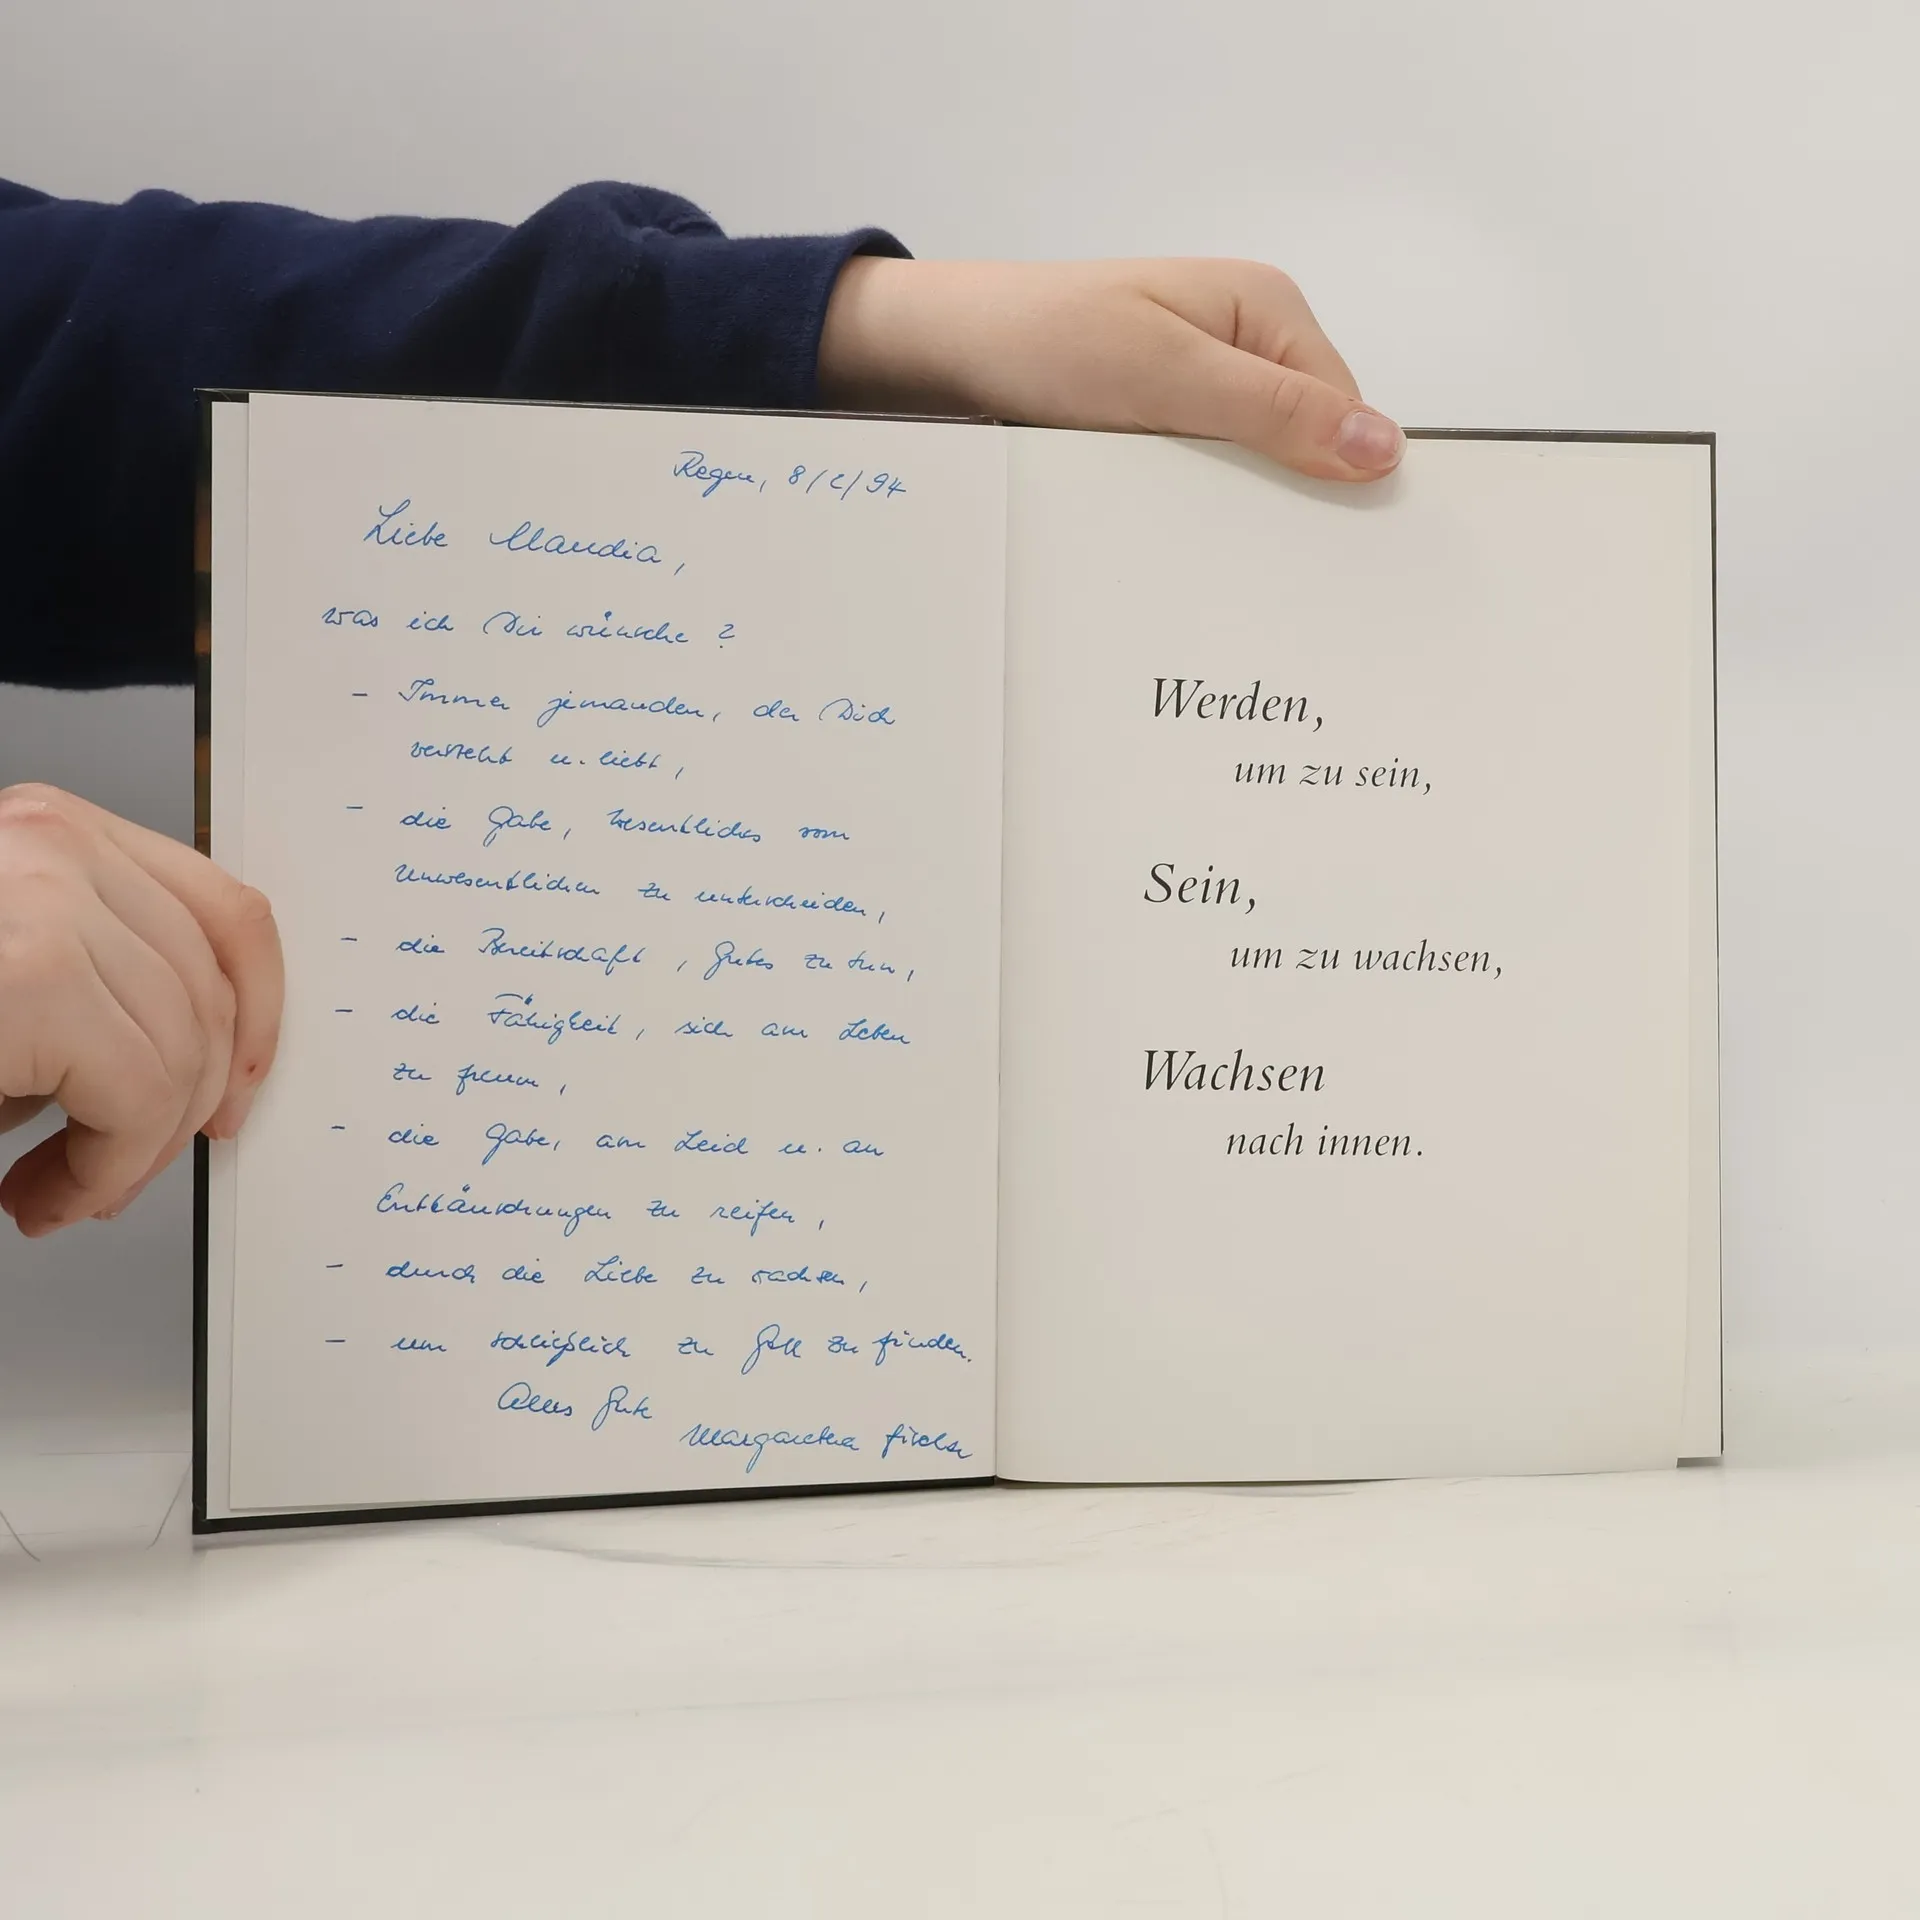 Regen, 8/2/94
Liebe Claudia,
was ich Dir wünsche?
- Immer jemanden, der Dich
versteht u. liebt,
- die Gabe, Wesentliches vom
Unwesentlichen zu unterscheiden,
- die Bereitschaft, Gutes zu tun,
- die Fähigkeit, sich am Leben
zu freuen,
- die Gabe, am Leid u. an
Enttäuschungen zu reifen,
- durch die Liebe zu wachsen,
- um schließlich zu Gott zu finden.
Alles Gute
Margaretha Fischer
Werden,
um zu sein,
Sein,
um zu wachsen,
Wachsen
nach innen.